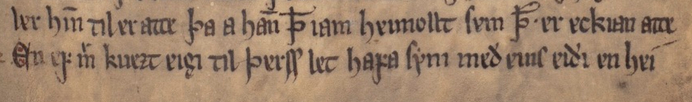 ler hin̄ til er atte þa a han̄ þ̄ iam heimollt sem þ̄ · er eckian atte
En ef m̄ kuezt eigi til þerſſ let hafa synı med eins eidi en hei